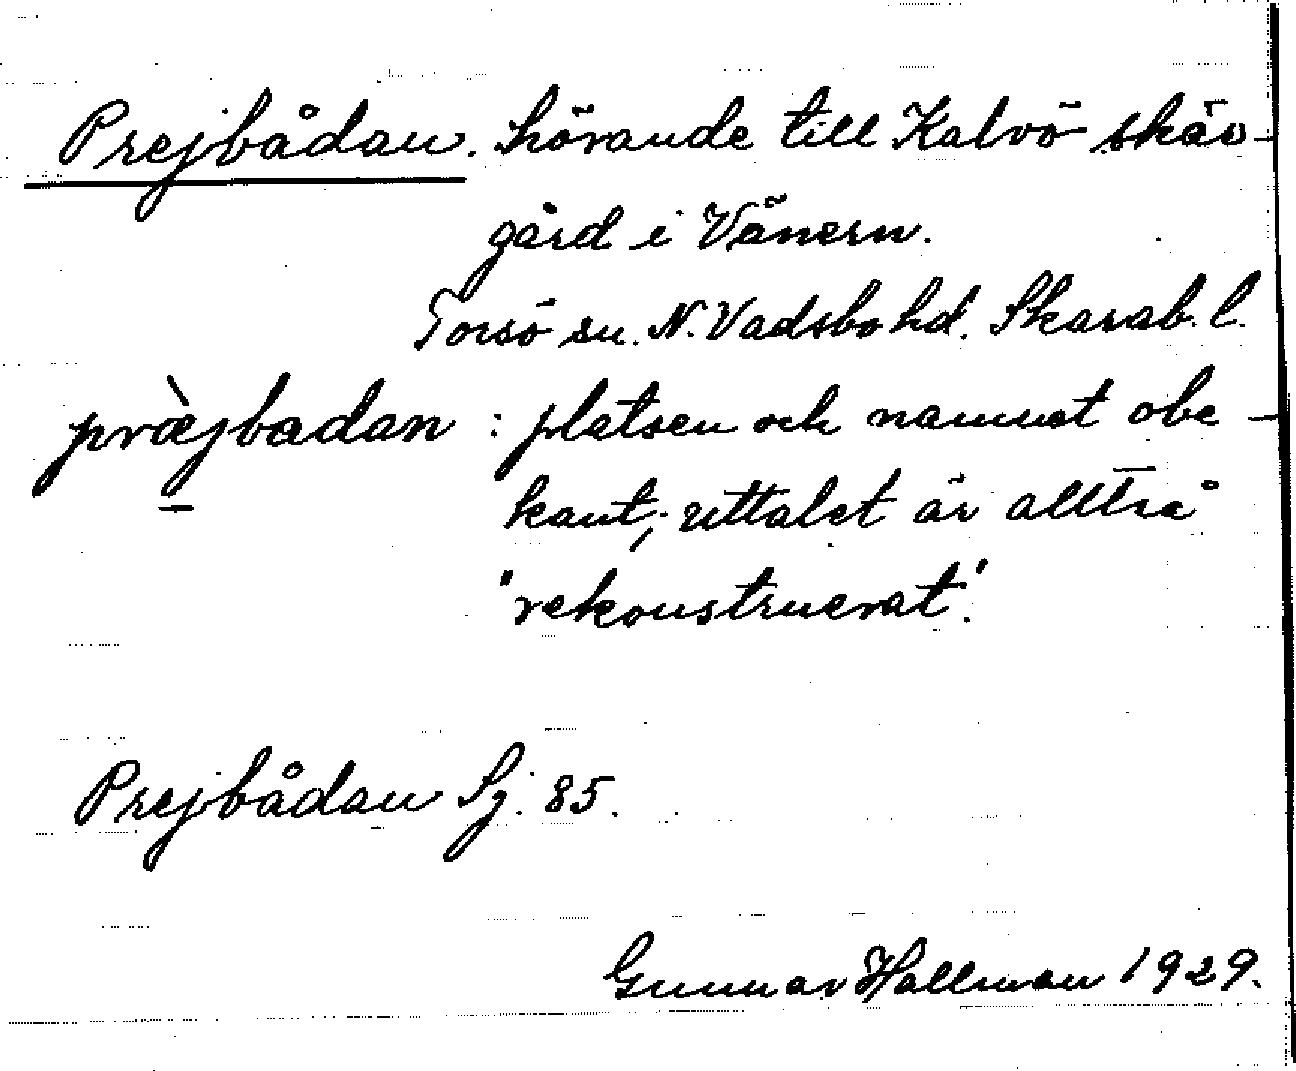 Prejbådan. hörande till Kalvö skär-
gård i Vänern.
Torsö sn. N. Vadsbo hd. Skarab. l.
præ̀jbadan : platsen och namnet obe-
kant; uttalet är alltså
"rekonstruerat".
Prejbådan Sj. 85.
Gunnar Hallman 1929.